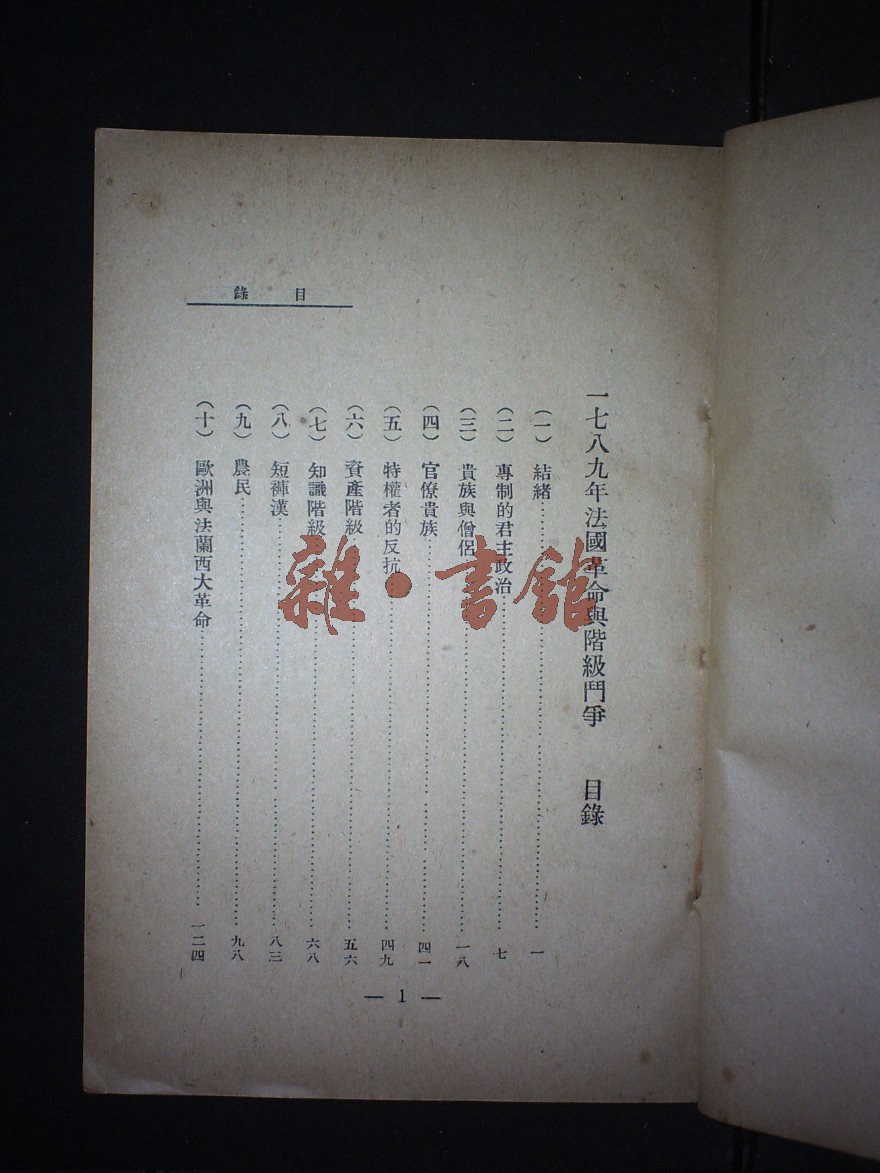 目錄
一七八九年法國革命與階級鬥爭 目錄
(一) 結緒 一
(二) 專制的君主政治 七
(三) 貴族與僧侶 一八
(四) 官僚貴族 四一
(五) 特權者的反抗 四九
(六) 資產階級 五六
(七) 知識階級 六八
(八) 短褲漢 八三
(九) 農民 九八
(十) 歐洲與法蘭西大革命 一二四
— 1 —
雜·書館